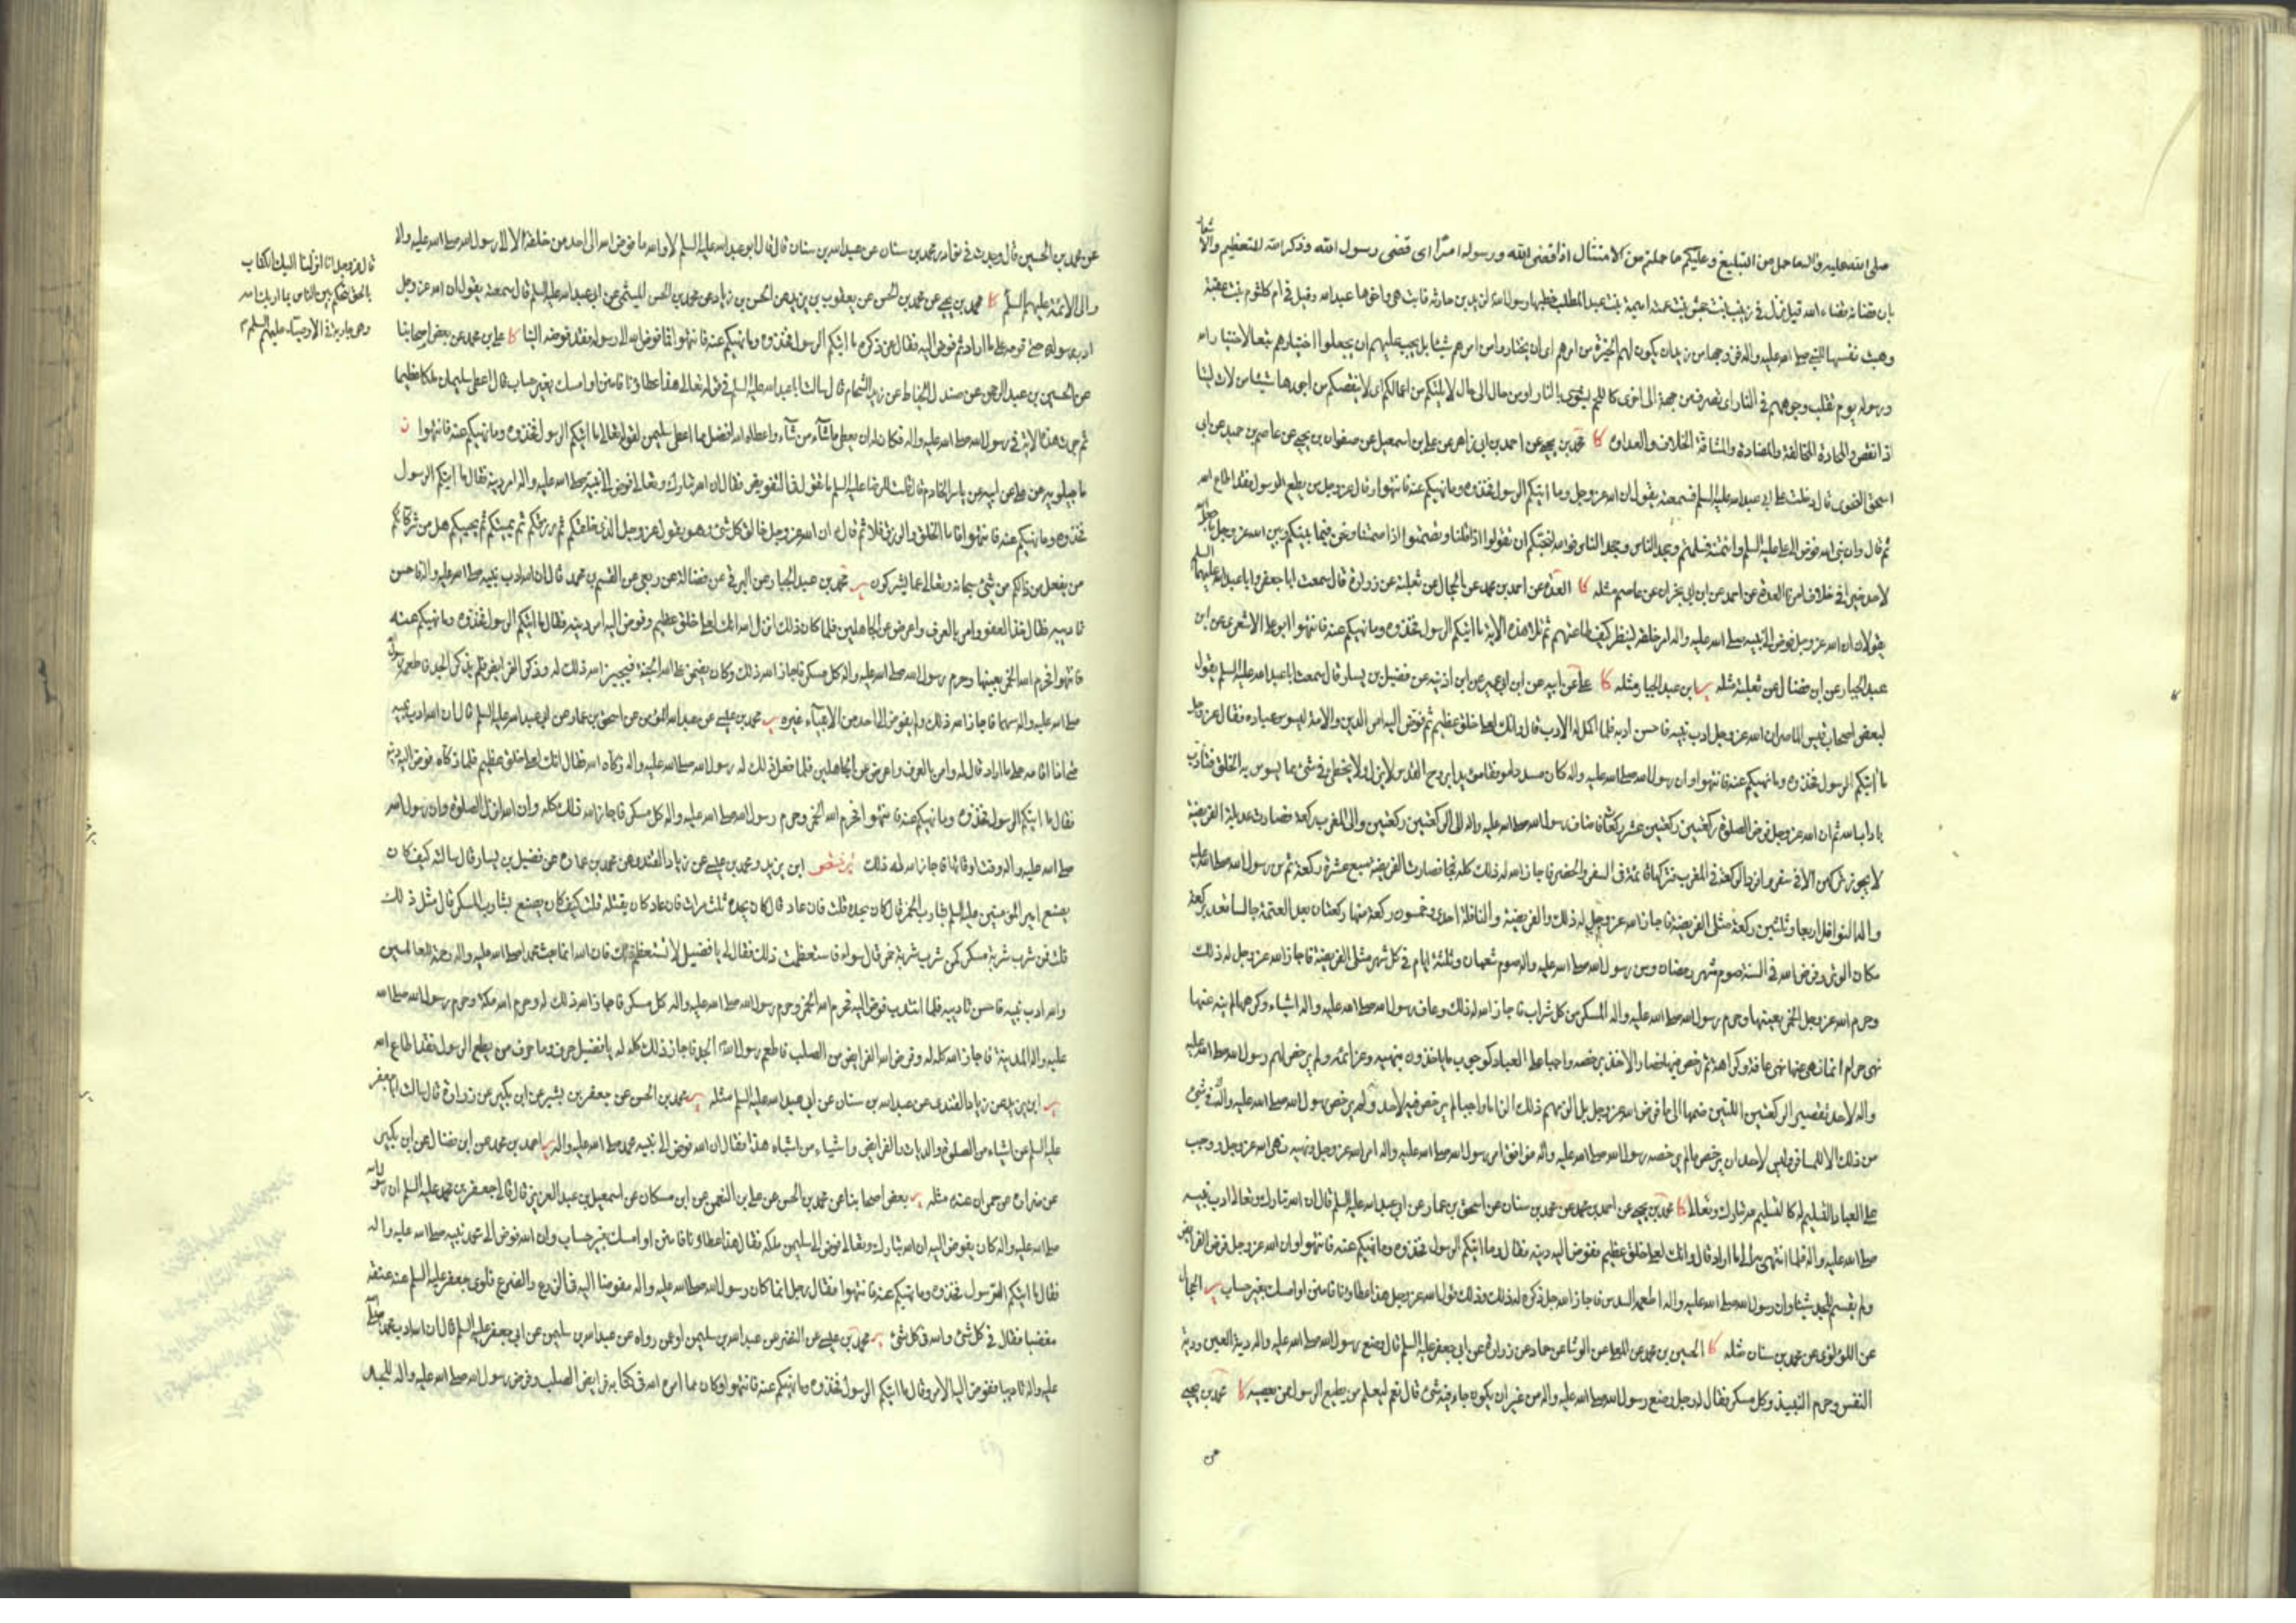 صلى الله عليه واله ما حمل من التبليغ وعليكم ما حملتم من الامتثال اذا قضى الله ورسوله امرا اى قضى رسول الله وذكر الله للتعظيم والاشعار
بان قضائه قضاء الله قيل نزل فى زينب بنت جحش بنت عمته اميمة بنت عبد المطلب خطبها رسول الله لزيد بن حارثة فابت هى واخوها عبدالله وقيل فى ام كلثوم بنت عقبة
وهبت نفسها للنبى صلى الله عليه واله فزوجها من زيد ان يكون لهم الخيرة من امرهم اى ان يختاروا من امرهم شيئا بل يجب عليهم ان يجعلوا اختيارهم تبعا لاختيار الله
ورسوله يوم تقلب وجوههم فى النار اى تصرف من جهة الى اخرى كاللحم يشوى بالنار او من حال الى حال لا يلتكم من اعمالكم اى لا ينقصكم من اجورها شيئا من لات ليتا
اذا نقص والمحادة المخالفة والمضادة والمشاقة الخلاف والعداوة كا محمد بن يحيى عن احمد بن ابى زاهر عن على بن اسمعيل عن صفوان بن يحيى عن عاصم بن حميد عن ابى
اسحق النحوى قال دخلت على ابى عبدالله عليه السلم فسمعته يقول ان الله عز وجل وما اتيكم الرسول فخذوه وما نهيكم عنه فانتهوا وقال عز وجل من يطع الرسول فقد اطاع الله
ثم قال وان نبى الله فوض الى على عليه السلم وائتمنه فسلمتم وجحد الناس فوالله لنحبكم ان تقولوا اذا قلنا وتصمتوا اذا صمتنا ونحن فيما بينكم وبين الله عز وجل ما جعل الله
لاحد خيرا فى خلاف امرنا العدة عن احمد عن ابن ابى نجران عن عاصم مثله كا العدة عن احمد بن محمد عن الحجال عن ثعلبة عن زرارة قال سمعت ابا جعفر وابا عبدالله عليهما السلم
يقولان ان الله عز وجل فوض الى نبيه صلى الله عليه واله امر خلقه لينظر كيف طاعتهم ثم تلا هذه الاية ما اتيكم الرسول فخذوه وما نهيكم عنه فانتهوا ابو على الاشعرى عن ابن
عبد الجبار عن ابن فضال عن ثعلبة مثله ير ابن عبد الجبار مثله كا على عن ابيه عن ابن ابى عمير عن ابن اذينة عن فضيل بن يسار قال سمعت ابا عبدالله عليه السلم يقول
لبعض اصحاب قيس الماصر ان الله عز وجل ادب نبيه فاحسن ادبه فلما اكمل له الادب قال وانك لعلى خلق عظيم ثم فوض اليه امر الدين والامة ليسوس عباده فقال عز وجل
ما اتيكم الرسول فخذوه وما نهيكم عنه فانتهوا وان رسول الله صلى الله عليه واله كان مسددا موفقا مؤيدا بروح القدس لا يزل ولا يخطئ فى شئ مما يسوس به الخلق فتادب
باداب الله ثم ان الله عز وجل فرض الصلوة ركعتين ركعتين عشر ركعات فاضاف رسول الله صلى الله عليه واله الى الركعتين ركعتين والى المغرب ركعة فصارت عديلة الفريضة
لا يجوز تركهن الا فى سفر وافرد الركعة فى المغرب فتركها قائمة فى السفر والحضر فاجاز الله له ذلك كله فصارت الفريضة سبع عشرة ركعة ثم سن رسول الله صلى الله عليه
واله النوافل اربعا وثلثين ركعة مثلى الفريضة فاجاز الله عز وجل له ذلك والفريضة والنافلة احدى وخمسون ركعة منها ركعتان بعد العتمة جالسا تعد بركعة
مكان الوتر وفرض الله فى السنة صوم شهر رمضان وسن رسول الله صلى الله عليه واله صوم شعبان وثلثة ايام فى كل شهر مثلى الفريضة فاجاز الله عز وجل له ذلك
وحرم الله عز وجل الخمر بعينها وحرم رسول الله صلى الله عليه واله المسكر من كل شراب فاجاز الله له ذلك وعاف رسول الله صلى الله عليه واله اشياء وكرهها لم ينه عنها
نهى حرام انما نهى عنها نهى عافة وكراهة ثم رخص فيها فصار الاخذ برخصه واجبا على العباد كوجوب ما ياخذون بنهيه وعزائمه ولم يرخص لهم رسول الله صلى الله عليه
واله لاحد تقصير الركعتين اللتين ضمهما الى ما فرض الله عز وجل بل الزمهم ذلك الزاما واجبا لم يرخص فيه لاحد
من ذلك الا للمسافر وليس لاحد ان يرخص ما لم يرخصه رسول الله صلى الله عليه واله فوافق امر رسول الله صلى الله عليه واله امر الله عز وجل ونهيه نهى الله عز وجل ووجب
على العباد التسليم له كالتسليم لله تبارك وتعالى كا محمد بن يحيى عن احمد بن محمد عن محمد بن سنان عن اسحق بن عمار عن ابى عبدالله عليه السلم قال ان الله تبارك وتعالى ادب نبيه
صلى الله عليه واله فلما انتهى به الى ما اراد قال وانك لعلى خلق عظيم ففوض اليه دينه فقال وما اتيكم الرسول فخذوه وما نهيكم عنه فانتهوا وان الله عز وجل فرض الفرائض
ولم يقسم للجد شيئا وان رسول الله صلى الله عليه واله اطعمه السدس فاجاز الله جل ذكره له ذلك وذلك قول الله عز وجل هذا عطاؤنا فامنن او امسك بغير حساب ير الحجال
عن اللؤلؤى عن محمد بن سنان مثله كا الحسين بن محمد عن المعلى عن الوشا عن حماد عن زرارة عن ابى جعفر عليه السلم قال وضع رسول الله صلى الله عليه واله دية العين ودية
النفس وحرم النبيذ وكل مسكر فقال له رجل وضع رسول الله صلى الله عليه واله من غير ان يكون جاء فيه شئ قال نعم ليعلم من يطيع الرسول ممن يعصيه كا محمد بن يحيى
عن
عن محمد بن الحسين قال وجدت فى نوادر محمد بن سنان عن عبدالله بن سنان قال قال ابو عبدالله عليه السلم لا والله ما فوض الله الى احد من خلقه الا الى رسول الله صلى الله عليه واله
والى الائمة عليهم السلم كا محمد بن يحيى عن محمد بن الحسن عن يعقوب بن يزيد عن الحسن بن زياد عن محمد بن الحسن الميثمى عن ابى عبدالله عليه السلم قال سمعته يقول ان الله عز وجل
ادب رسوله حتى قومه على ما اراد ثم فوض اليه فقال عز ذكره ما اتيكم الرسول فخذوه وما نهيكم عنه فانتهوا فما فوض الله الى رسوله فقد فوضه الينا كا على بن محمد عن بعض اصحابنا
عن الحسين بن عبد الرحمن عن صندل الخياط عن زيد الشحام قال سالت ابا عبدالله عليه السلم فى قوله تعالى هذا عطاؤنا فامنن او امسك بغير حساب قال اعطى سليمان ملكا عظيما
ثم جرت هذه الاية فى رسول الله صلى الله عليه واله فكان له ان يعطى ما شآء من شآء واعطاه الله افضل مما اعطى سليمن لقوله تعالى ما اتيكم الرسول فخذوه وما نهيكم عنه فانتهوا ن
ماجيلويه عن على عن ابيه عن ياسر الخادم قال قلت للرضا عليه السلم ما تقول فى التفويض فقال ان الله تبارك وتعالى فوض الى نبيه صلى الله عليه واله امر دينه فقال ما اتيكم الرسول
فخذوه وما نهيكم عنه فانتهوا فاما الخلق والرزق فلا ثم قال ان الله عز وجل خالق كل شئ وهو يقول عز وجل الذى خلقكم ثم رزقكم ثم يميتكم ثم يحييكم هل من شركائكم
من يفعل من ذلكم من شئ سبحانه وتعالى عما يشركون ير محمد بن عبد الجبار عن البرقى عن فضالة عن ربعى عن القسم بن محمد قال ان الله ادب نبيه صلى الله عليه واله فاحسن
تاديبه فقال خذ العفو وامر بالعرف واعرض عن الجاهلين فلما كان ذلك انزل الله انك لعلى خلق عظيم وفوض اليه امر دينه فقال ما اتيكم الرسول فخذوه وما نهيكم عنه
فانتهوا فحرم الله الخمر بعينها وحرم رسول الله صلى الله عليه واله كل مسكر فاجاز الله ذلك وكان يضمن على الله الجنة فيجيز الله ذلك له وذكر الفرائض فلم يذكر الجد فاطعمه رسول الله
صلى الله عليه واله سهما فاجاز الله ذلك ولم يفوض الى احد من الانبيآء غيره ير محمد بن عيسى عن عبدالله المؤمن عن اسحق بن عمار عن ابى عبدالله عليه السلم قال ان الله ادب نبيه
حتى اذا اقامه على ما اراد قال له وامر بالعرف واعرض عن الجاهلين فلما فعل ذلك له رسول الله صلى الله عليه واله زكاه الله فقال انك لعلى خلق عظيم فلما زكاه فوض اليه دينه
فقال ما اتيكم الرسول فخذوه وما نهيكم عنه فانتهوا فحرم الله الخمر وحرم رسول الله صلى الله عليه واله كل مسكر فاجاز الله ذلك كله وان الله انزل الصلوة وان رسول الله
صلى الله عليه واله وقت اوقاتها فاجاز الله له ذلك ير ختص ابن يزيد ومحمد بن عيسى عن زياد القندى عن محمد بن عمارة عن فضيل بن يسار قال سالته كيف كان
يصنع امير المؤمنين عليه السلم بشارب الخمر قال كان يحده قلت فان عاد قال كان يحده ثلث مرات فان عاد كان يقتله قلت كيف كان يصنع بشارب المسكر قال مثل ذلك
قلت فمن شرب شربة مسكر كمن شرب شربة خمر قال سواء فاستعظمت ذلك فقال لى يا فضيل لا تستعظم ذلك فان الله انما بعث محمدا صلى الله عليه واله رحمة للعالمين
والله ادب نبيه فاحسن تاديبه فلما ائتدب فوض اليه فحرم الله الخمر وحرم رسول الله صلى الله عليه واله كل مسكر فاجاز الله ذلك له وحرم الله مكة وحرم رسول الله صلى الله
عليه واله المدينة فاجاز الله كله له وفرض الله الفرايض من الصلب فاطعم رسول الله الجد فاجاز ذلك كله له يا فضيل حرف وما حرف من يطع الرسول فقد اطاع الله
ير ابن يزيد عن زياد القندى عن عبدالله بن سنان عن ابى عبدالله عليه السلم مثله ير محمد بن الحسن عن جعفر بن بشير عن ابن بكير عن زرارة قال سالت ابا جعفر
عليه السلم عن اشياء من الصلوة والديات والفرايض واشياء من اشباه هذا فقال ان الله فوض الى نبيه محمد صلى الله عليه واله ير احمد بن محمد عن ابن فضال عن ابن بكير
عن زرارة عن حمران عنه مثله ير بعض اصحابنا عن محمد بن الحسن عن على بن النعمان عن ابن مسكان عن اسمعيل بن عبد العزيز قال قال لى جعفر بن محمد عليه السلم ان رسول الله
صلى الله عليه واله كان يفوض اليه ان الله تبارك وتعالى فوض الى سليمن ملكه فقال هذا عطاؤنا فامنن او امسك بغير حساب وان الله فوض الى محمد نبيه صلى الله عليه واله
فقال ما اتيكم الرسول فخذوه وما نهيكم عنه فانتهوا فقال رجل انما كان رسول الله صلى الله عليه واله مفوضا اليه فى الزرع والضرع فلوى جعفر عليه السلم عنه عنقه
مغضبا فقال فى كل شئ والله فى كل شئ ير محمد بن عيسى عن النضر عن عبدالله بن سليمن او عن رواه عن عبدالله بن سليمن عن ابى جعفر عليه السلم قال ان الله ادب محمدا صلى الله
عليه واله تاديبا ففوض اليه الامر وقال ما اتيكم الرسول فخذوه وما نهيكم عنه فانتهوا وكان مما امره الله فى كتابه فرايض الصلب وفرض رسول الله صلى الله عليه واله للجد
قال عز وجل انا انزلنا اليك الكتاب
بالحق لتحكم بين الناس بما اريك الله
وهى جارية فى الاوصياء عليهم السلم